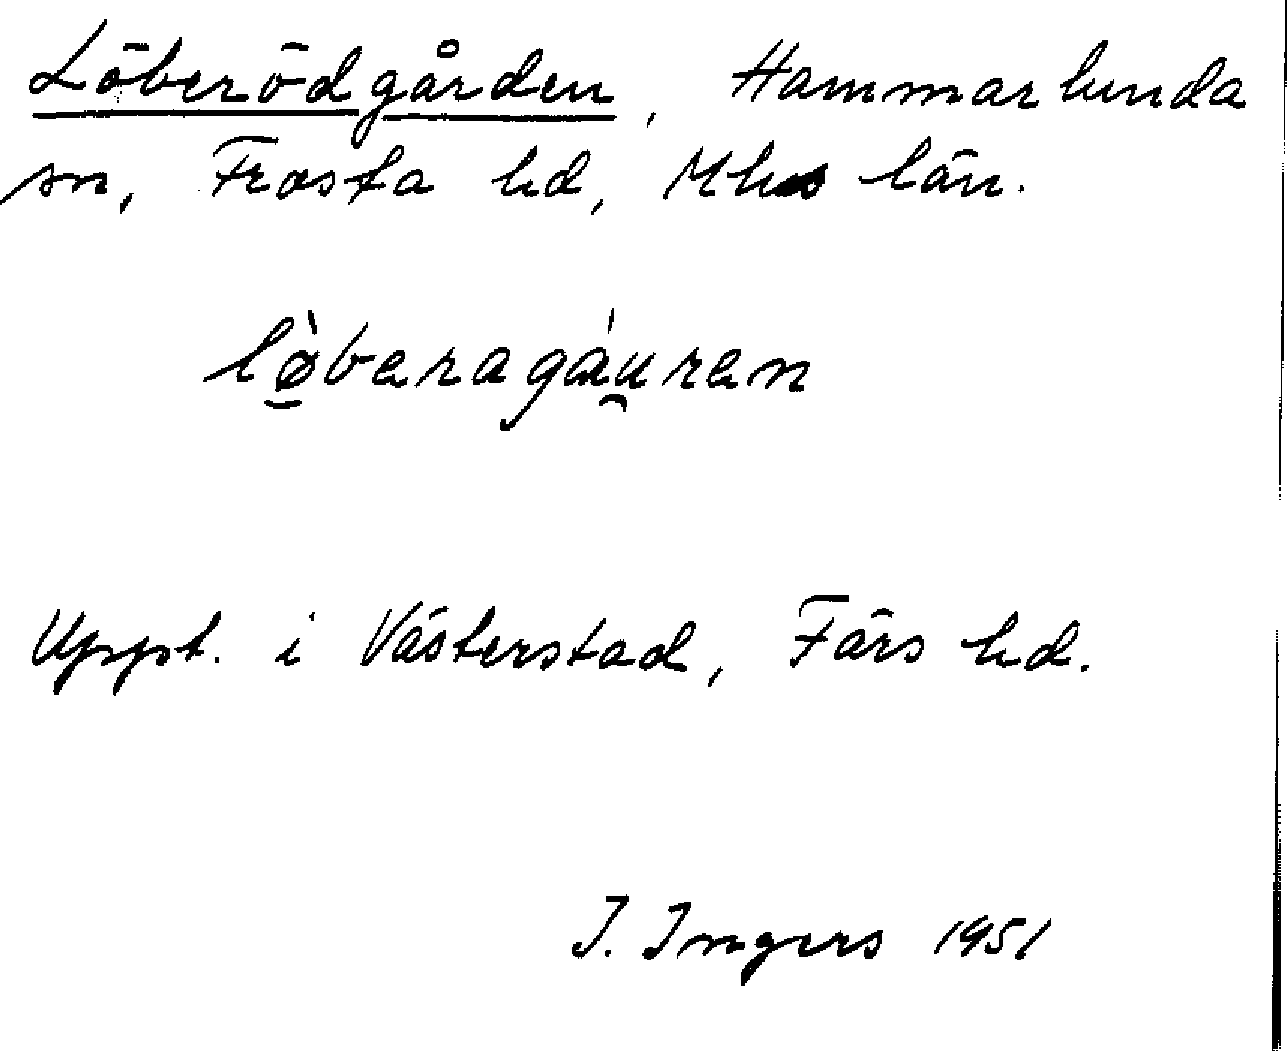 Löberödgården, Hammarlunda
sn, Frosta hd, Mhs län.
lø̱̀beragáu̯ren
Uppt. i Västerstad, Färs hd.
I. Ingers 1951